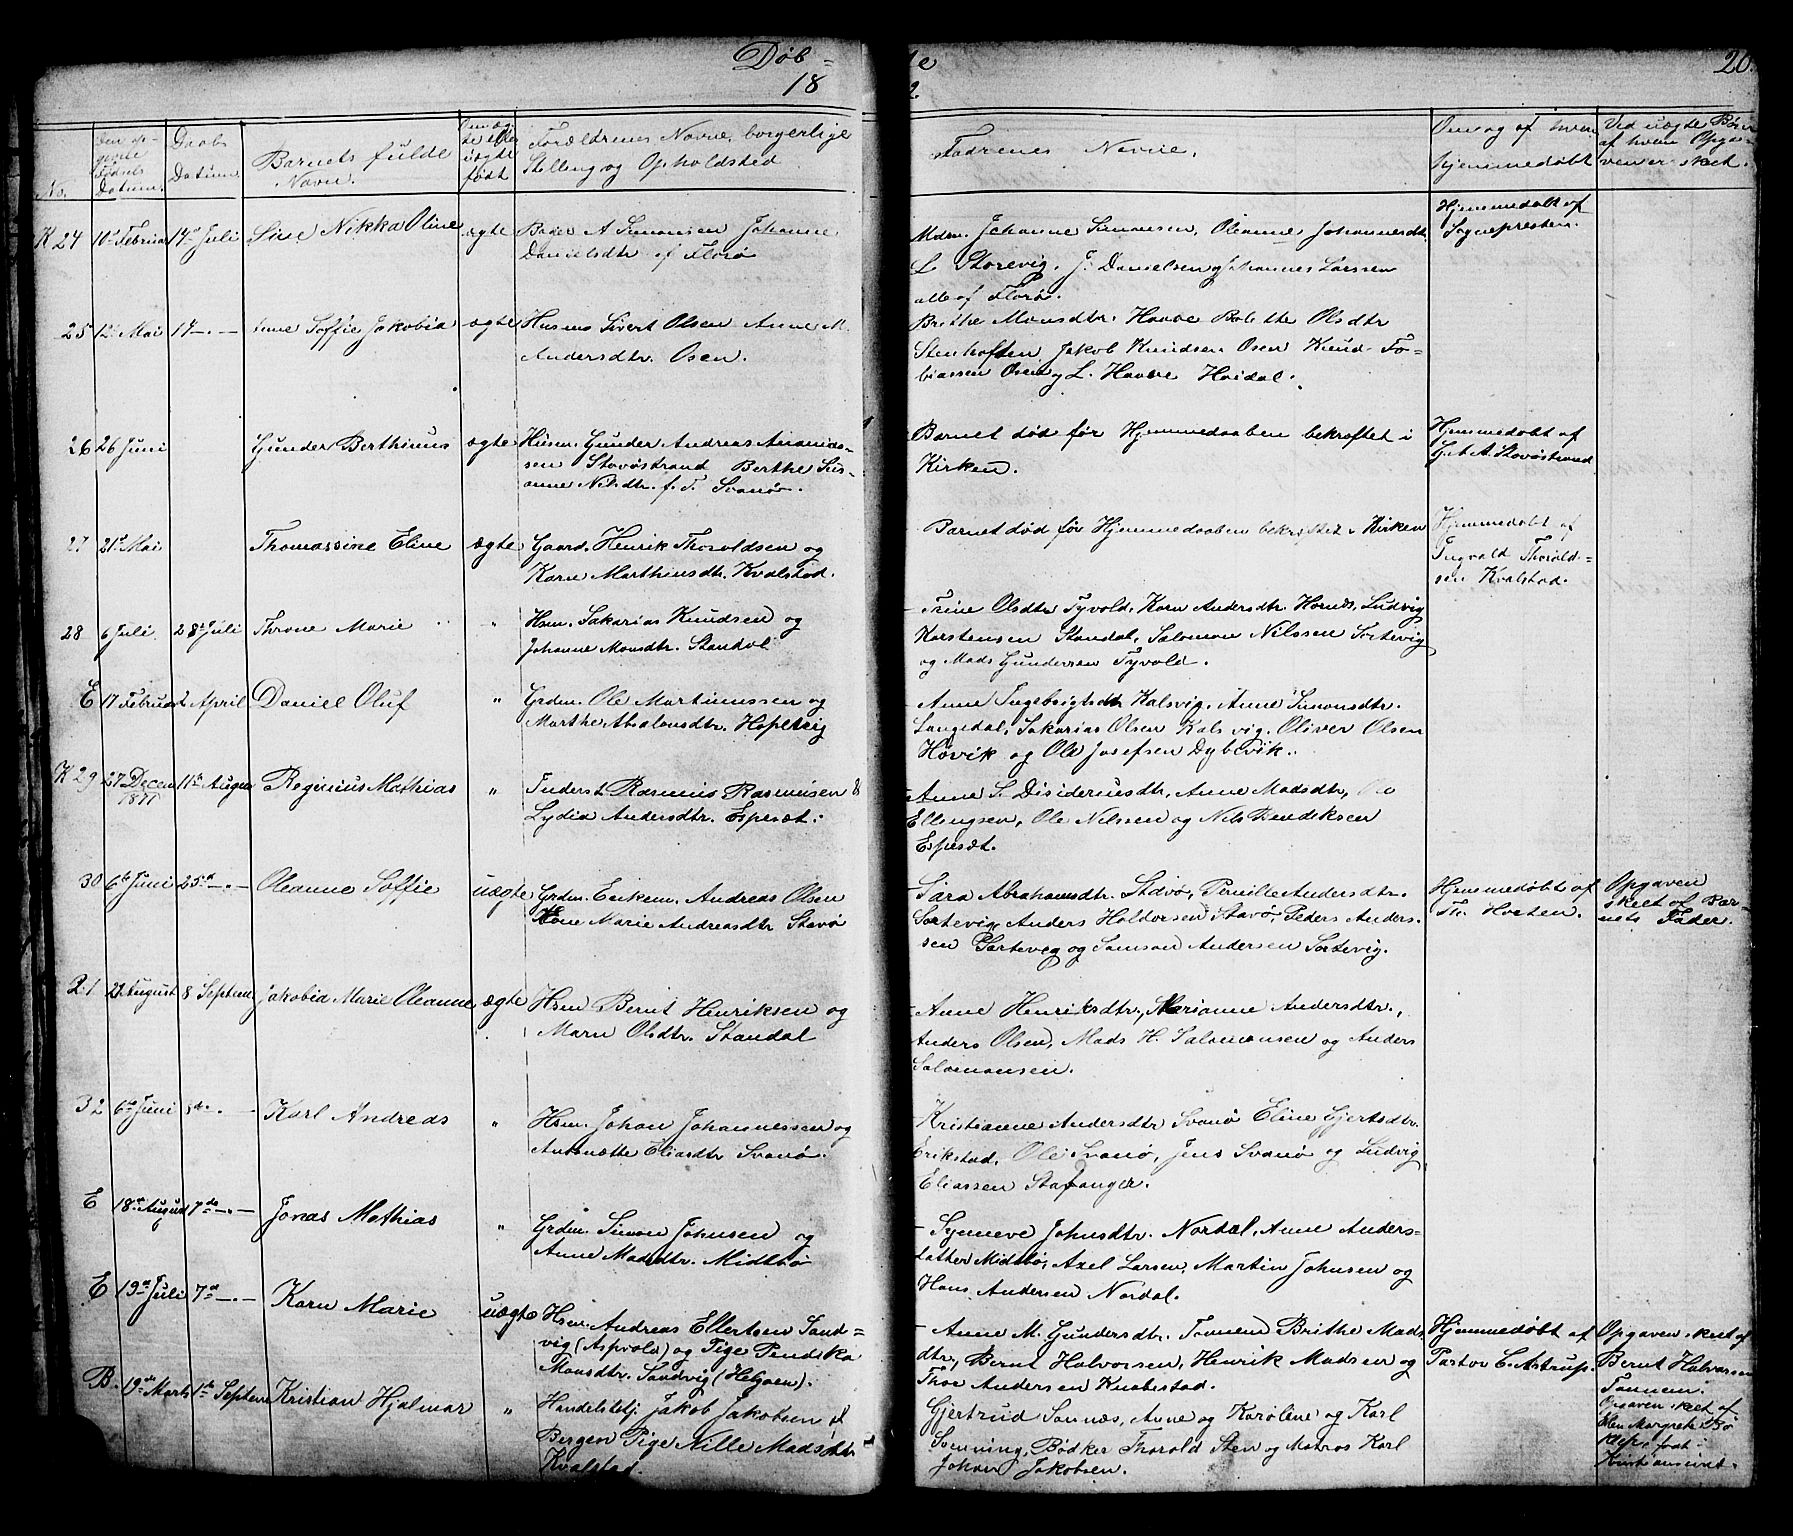 Døb-
18
te
2.
20.
No.
Døbs Datum.
Barnets fulde
Navn.
født
Forældrenes Navne, borgerlige
Stilling og Opholdsted
Fadrenes Navne.
hjemmedøbt
Ved uægte Børn
af hvem Opga-
ven er skeet.
K 24 10de Februar 14de Juli Nikka Oline ægte A Simonsen Johanne
Danielsdtr af Florø
Mdm. Johanne Simonsen, Oleanne Johannesdtr
L Storevig, J. Danielsen og Johannes Larssen
alle af Florø.
Hjemmedøbt af
Sognepresten.
25 12te Mai 14 — . — Soffie Jakobia ægte Husm Sivert Olsen Anne M.
Andersdtr. Osen.
Brithe Monsdtr. Haave Bolette Olsdtr
Stenhoften, Jakob Knudsen Osen Knud To-
biassen Osen og L. Haave Hoidal.
26 26 Juni Gunder Berthinus ægte Husm. Gunder Andreas Ananias-
sen Stavøstrand Berthe Sus-
anne Nilsdtr. f. T. Svanø.
Barnet død før Hjemmedaaben bekræftet i
Kirken.
Hjemmedøbt af
G. A. A. Stavøstrand
27 21de Mai Thomassine Eline ægte Gaard. Henrik Thoroldsen og
Karn Marthinusdtr. Kvalstad.
Barnet død før Hjemmedaaben bekræftet i Kirken
Hjemmedøbt af
Ingvald Thorold-
sen Kvalstad.
28 6 Juli 28de Juli Throne Marie " Hsm. Sakarias Knudsen og
Johanne Monsdtr. Standal
- Trine Olsdtr Tyvold, Karn Andersdtr. Hornes, Ludvig
Karstensen Standal, Salomon Nilssen Sortevig
og Mads Gundersen Tyvold.
E 17 Februar April Daniel Oluf " Grdm. Ole Martinussen og
Marthe Absalonsdtr. Hopevig
- Anne Ingebrigtsdtr Kalsvig, Anne Simonsdtr.
Langedal, Sakarias Olsen Kalsvig, Oliver Olsen
Hovik og Ole Josefsen Dybevik.
K 29 27 Decem 1877 11te August Reginius Mathias " Inderst Rasmus Rasmusen &
Lydia Andersdtr. Espeset.
- Anne S. Disideriusdtr, Anne Madsdtr, Ole
Ellingsen, Ole Nilssen og Nils Bendiksen
Espeset.
30 6te Juni 25de — . — Oleanne Soffie uægte Grdm. Enkem. Andreas Olsen
Marie Andreasdtr Stavø
- Sara Abrahamsdtr. Stavø, Pernille Andersdtr.
Sortevig, Anders Haldorsen Stavø, Peders Anders-
sen Sortevig og Samson Andersen Sortevig.
Hjemmedøbt af
Th. Hoeten.
Opgaven
skeet af Bar-
nets Fader.
21 21 August 8 Septem Jakobia Marie Oleanne ægte Hsm Bernt Henriksen og
Marn Olsdtr. Standal
- Anne Henriksdtr, Marianne Andersdtr.,
Anders Olsen, Mads H. Salomonsen og Anders
Salomonsen.
32 6te Juni Karl Andreas " Hsm. Johan Johannessen og
Antonette Eliasdtr Svanø.
- Kristianne Andersdtr Svanø Eline Gjertsdtr.
Erikstad, Ole Svanø, Jens Svanø og Ludvig
Eliassen Stafanger.
E 18de August 7de — . — Jonas Mathias " Grdm. Simon Johnsen og
Anne Madsdtr. Midtbø
- Synneve Johnsdtr. Nordal, Anne Anders-
datter Midtbø, Axel Larsen, Martin Johnsen og
Hans Andersen Nordal.
E 19de Juli 7de — . — Karn Marie uægte Hsm. Andreas Ellertsen Sand-
vig (Aspvold) og Pige Pendika
Monsdtr. Sandvig (Helgøen).
- Anne M. Gundersdtr. Tonnem Brithe Mads
dtr, Bernt Halvorsen, Henrik Madsen og
Thoe Andersen Knabestad.
Hjemmedøbt af
Pastor C. Astrup.
Opgaven skeet af
Bernt Halvorssen
Tonnem.
B. 19de Marts 1ste Septem Kristian Hjalmar " Handelsbetj. Jakob Jakobsen af
Bergen Pige Nille Madsdtr
Kvalstad.
Gjertrud Sonnæs, Anne og Karoline og Karl
Svenning, Bødker Thorold Sten og Matros Karl
Johan Jakobsen.
Opgaven skeet af
Elen Margrete Bø